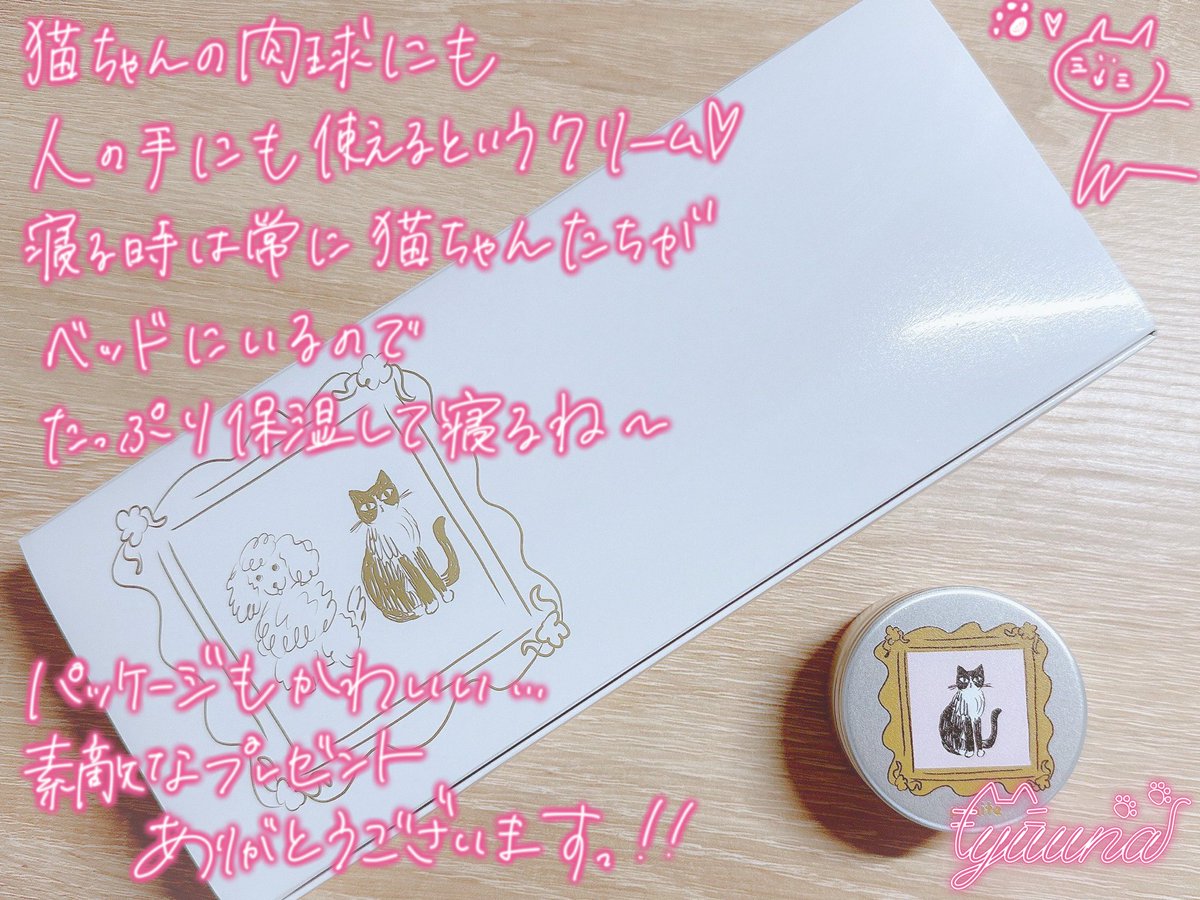 猫ちゃんの肉球にも
人の手にも使えるというクリーム♡
寝る時は常に猫ちゃんたちが
ベッドにいるので
たっぷり保温して寝るね〜
パッケージもかわいい…
素敵なプレゼント
ありがとうございます。!!
tyuuna